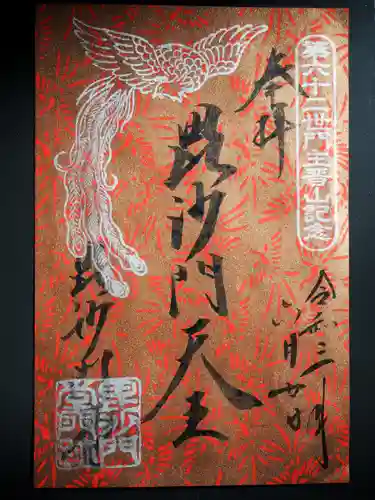 第六十二世門主晋山記念
奉拝
令和三年
六月廿日
毘沙門天王
毘沙門
毘沙門
堂門跡